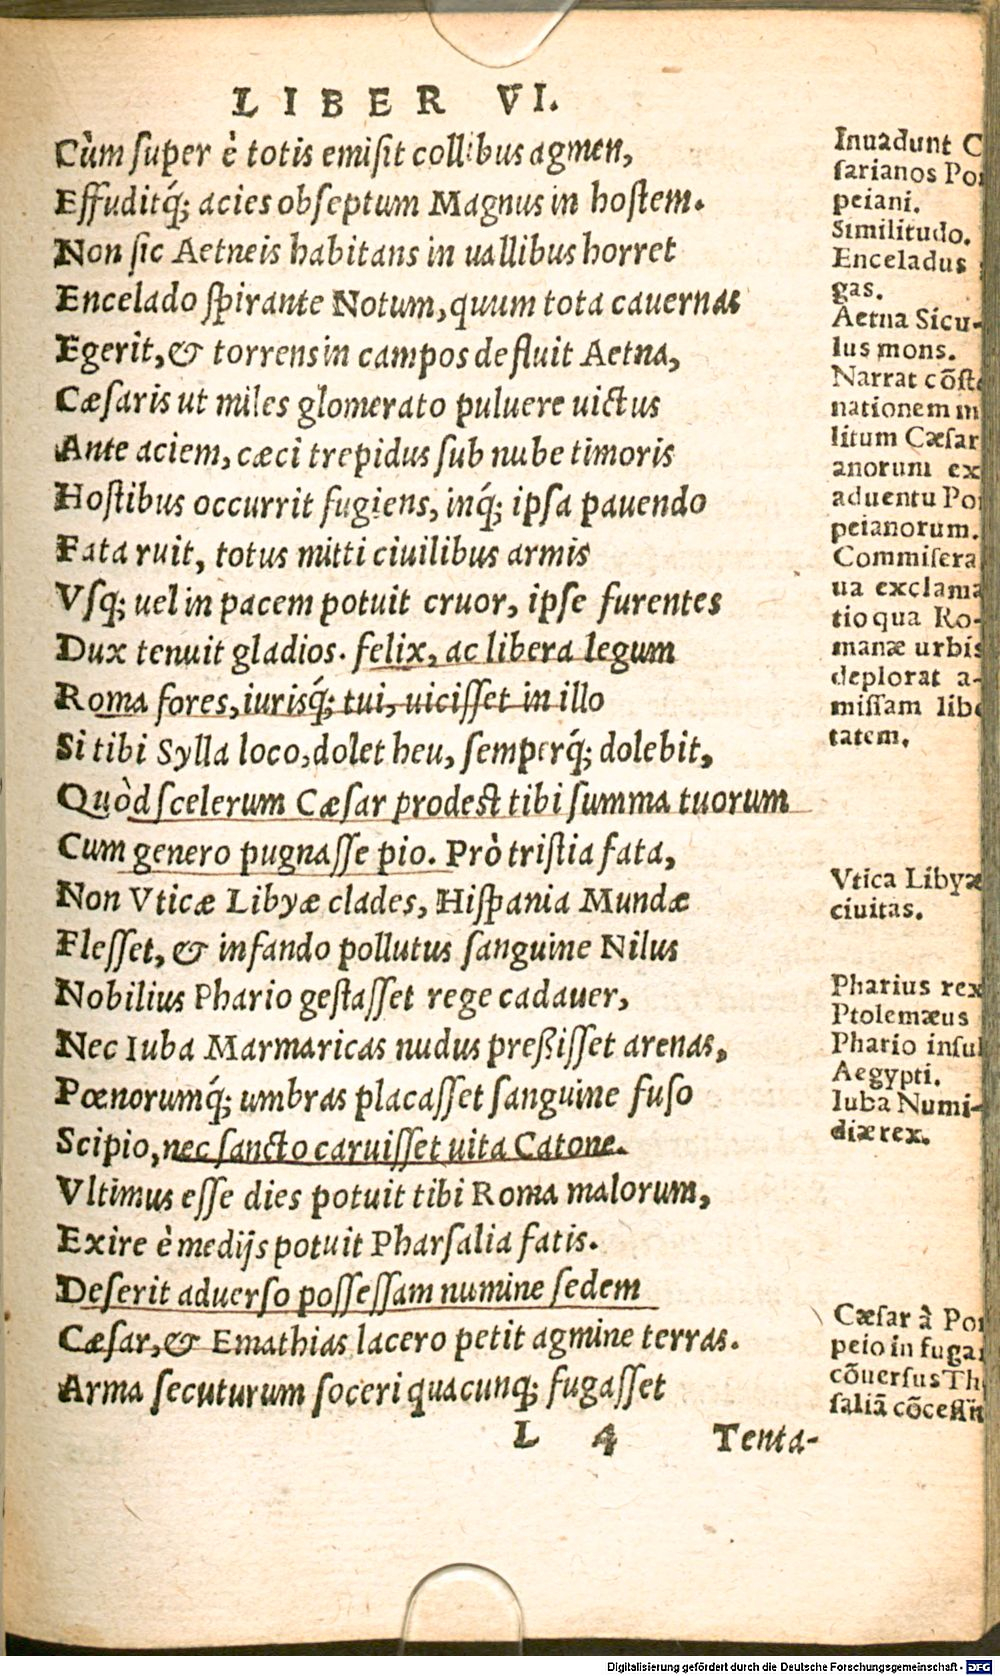 LIBER VI.
Cùm super è totis emisit collibus agmen,
Effuditq́; acies obseptum Magnus in hostem.
Non sic Aetneis habitans in uallibus horret
Encelado spirante Notum, quum tota cauernas
Egerit, & torrens in campos defluit Aetna,
Cæsaris ut miles glomerato puluere uictus
Ante aciem, cæci trepidus sub nube timoris
Hostibus occurrit fugiens, inq́; ipsa pauendo
Fata ruit, totus mitti ciuilibus armis
Vsq; uel in pacem potuit cruor, ipse furentes
Dux tenuit gladios. felix, ac libera legum
Roma fores, iurisq́; tui, uicisset in illo
Si tibi Sylla loco, dolet heu, semperq́; dolebit,
Quòd scelerum Cæsar prodest tibi summa tuorum
Cum genero pugnasse pio. Prò tristia fata,
Non Vticæ Libyæ clades, Hispania Mundæ
Flesset, & infando pollutus sanguine Nilus
Nobilius Phario gestasset rege cadauer,
Nec Iuba Marmaricas nudus preßisset arenas,
Pœnorumq́; umbras placasset sanguine fuso
Scipio, nec sancto caruisset uita Catone.
Vltimus esse dies potuit tibi Roma malorum,
Exire è medijs potuit Pharsalia fatis.
Deserit aduerso possessam numine sedem
Cæsar, & Emathias lacero petit agmine terras.
Arma secuturum soceri quacunq; fugasset
L 4 Tenta-
Inuadunt C
sarianos Po
peiani.
Similitudo.
Enceladus
gas.
Aetna Sicu-
lus mons.
Narrat cõste
nationem m
litum Cæsar
anorum ex
aduentu Po
peianorum.
Commisera
ua exclama
tio qua Ro-
manæ urbis
deplorat a-
missam libe
tatem.
Vtica Libyæ
ciuitas.
Pharius rex
Ptolemæus
Phario insul
Aegypti.
Iuba Numi-
diæ rex.
Cæsar à Po
peio in fuga
cõuersus Th
saliã cõcessit
Digitalisierung gefördert durch die Deutsche Forschungsgemeinschaft - DFG